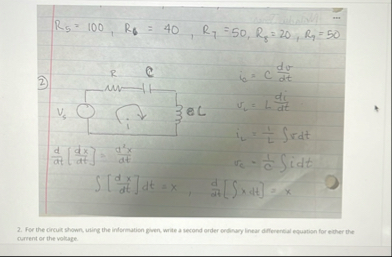 R5 = 100 , R6 = 40 , R7 = 50, R8 = 20 , R9 = 50
2)
R C
ic = C dv/dt
Vs
i
L
vL = L di/dt
iL = 1/L ∫vdt
d/dt [dx/dt] = d²x/dt
vc = 1/C ∫idt
∫[dx/dt]dt = x , d/dt[∫x dt] = x
2. For the circuit shown, using the information given, write a second order ordinary linear differential equation for either the
current or the voltage.